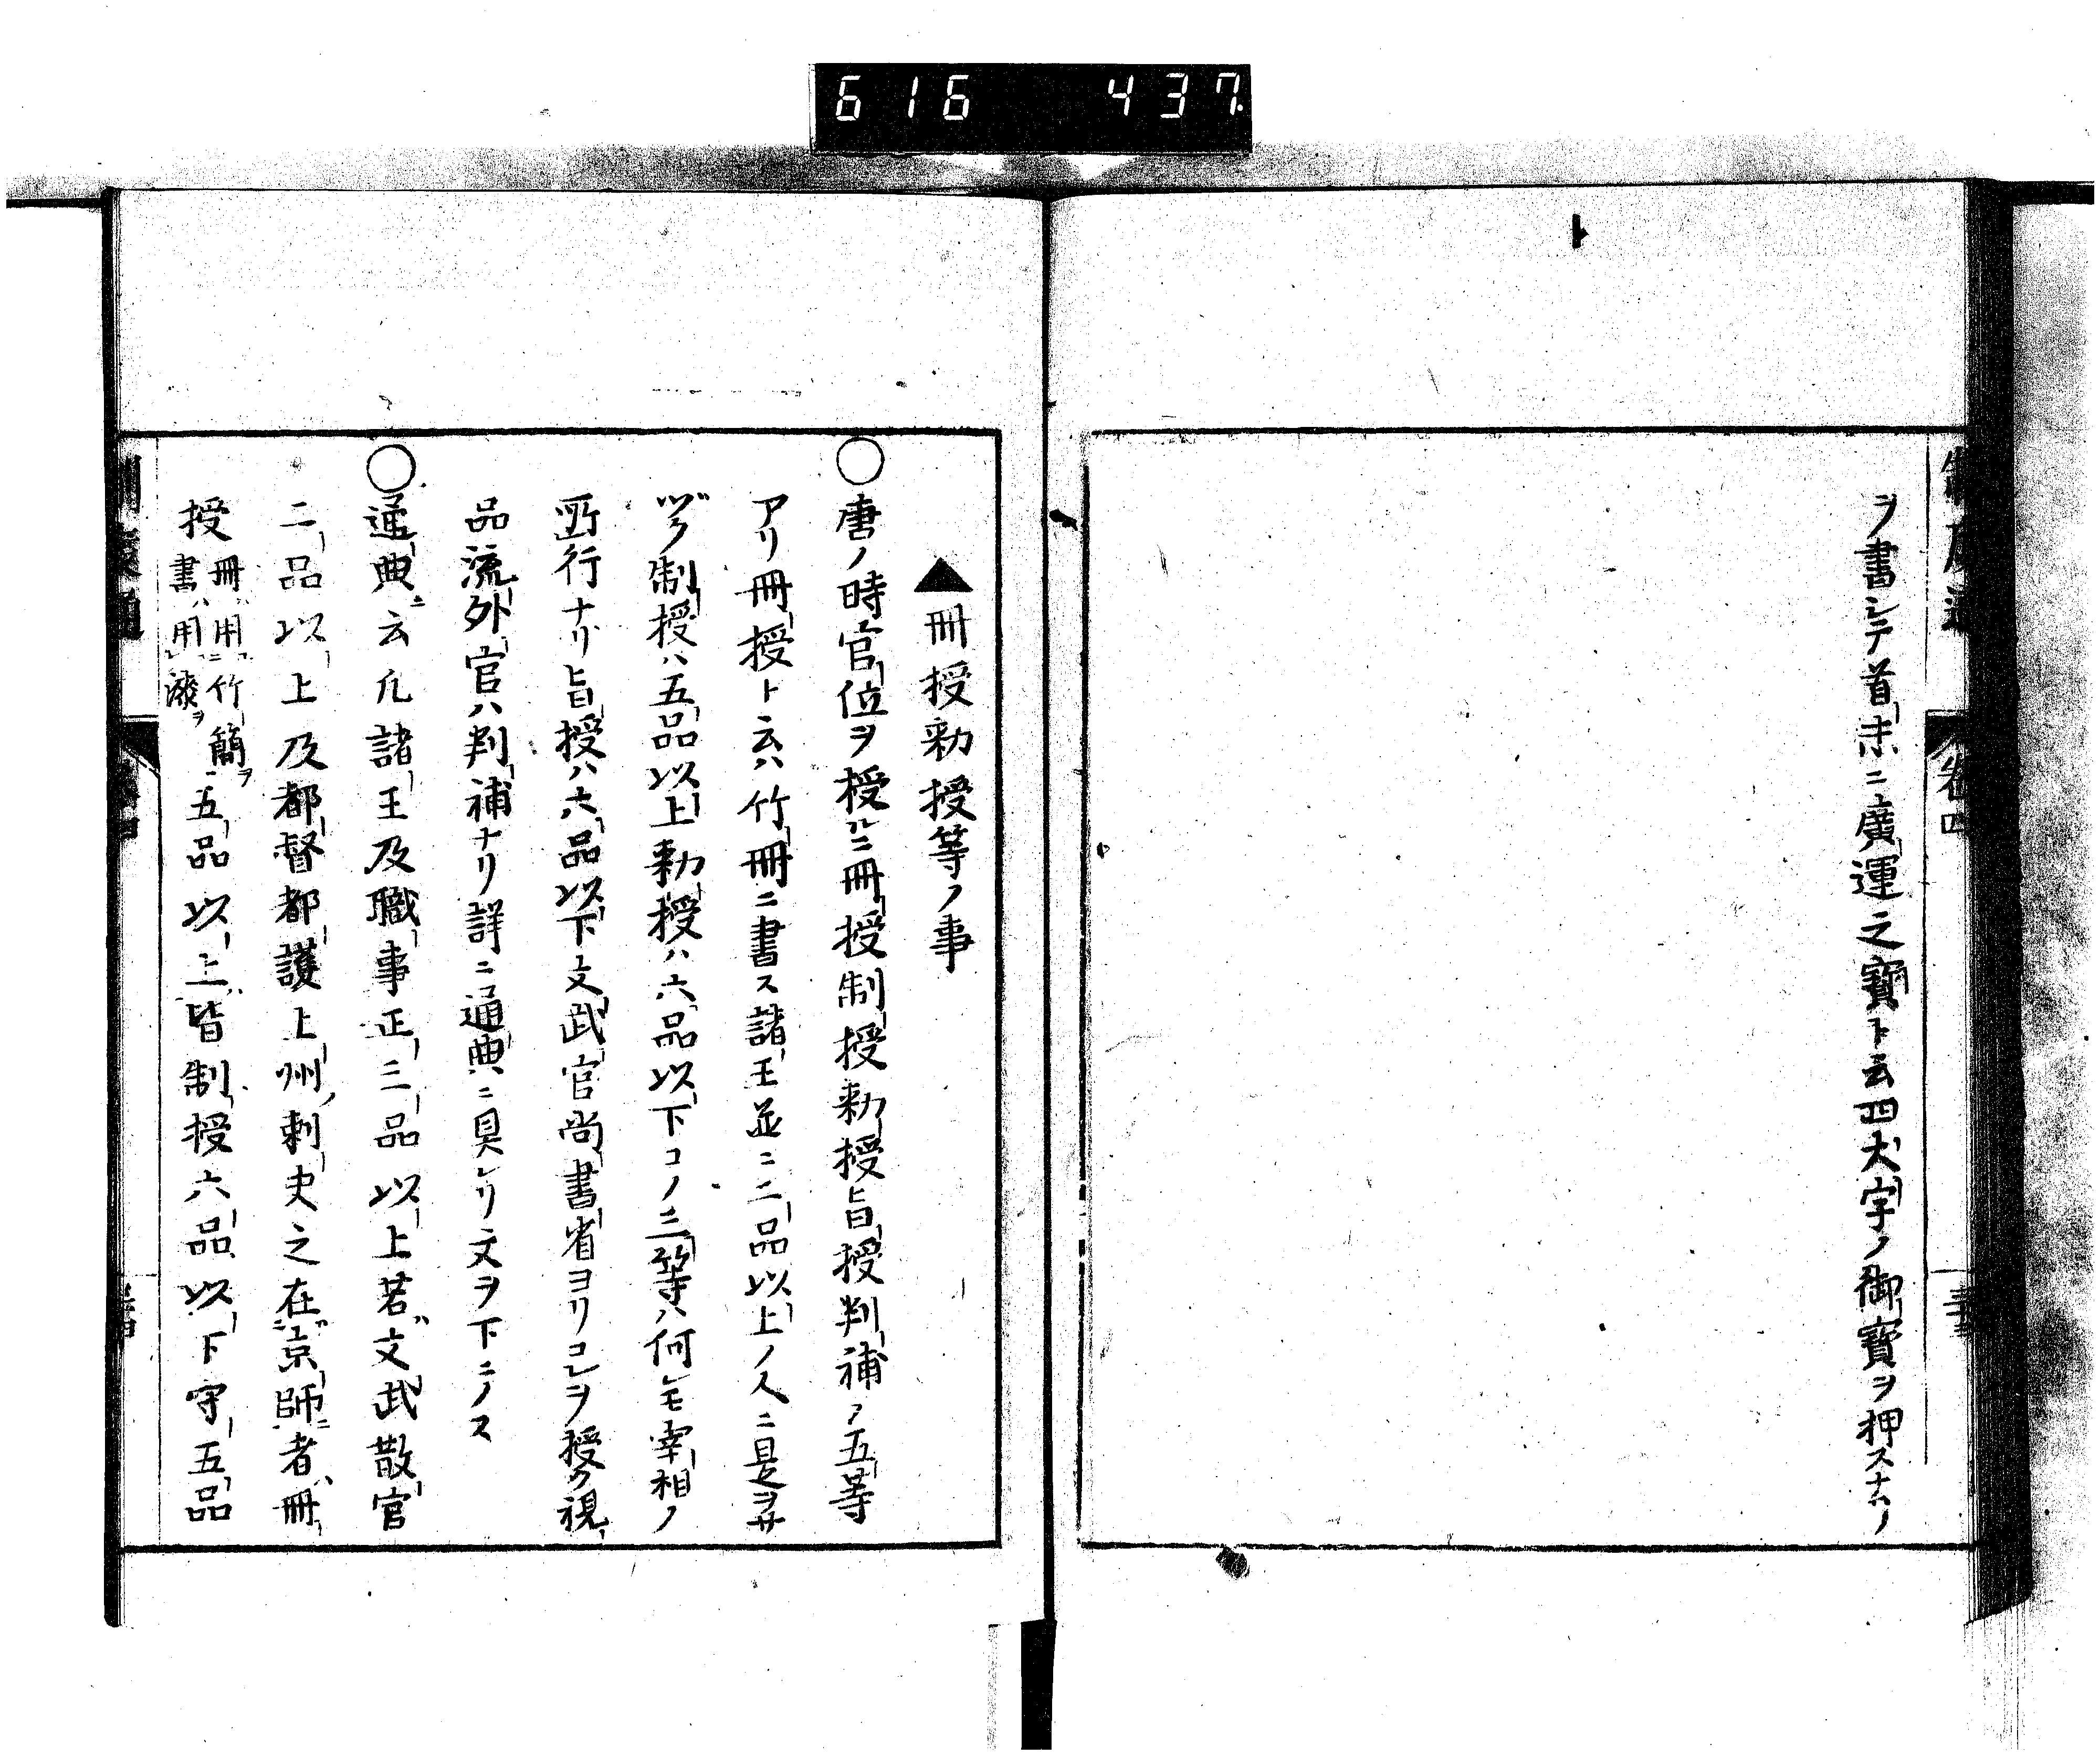 616 437
制度通
卷四
ヲ書シテ首末ニ廣運之寶ト云四大字ノ御寶ヲ押スナハノ
▲冊授勅授等ノ事
○唐ノ時官位ヲ授ルニ冊授制授勅授旨授判補ノ五等
アリ冊授ト云ハ竹冊ニ書ス諸王並ニ二品以上ノ人ニ是ヲサ
ヅク制授ハ五品以上勅授ハ六品以下コノ三等ハ何レモ宰相ノ
所行ナリ旨授ハ六品以下文武官尚書省ヨリコレヲ授ク視
品流外官ハ判補ナリ詳ニ通典ニ見レリ文ヲ下ニノス
○通典ニ云凡諸王及職事正三品以上若文武散官
二品以上及都督都護上州刺史之在京師者冊
授 冊用竹簡書用漆 五品以上皆制授六品以下守五品
制度通